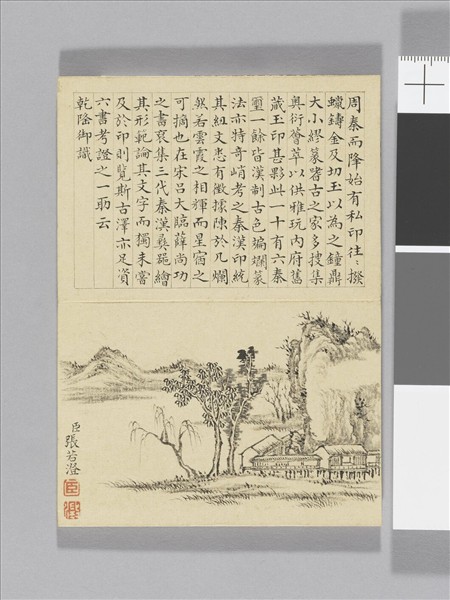 周秦而降始有私印往〻撥
蠟鑄金及切玉以為之鐘鼎
大小繆篆嗜古之家多搜集
衍薈萃以供雅玩內府舊
藏玉印甚夥此一十有六秦
璽一餘皆漢制古色斒斕篆
法亦特奇峭考之秦漢印統
其紐文悉有徵據陳於几爛
然若雲霞之相輝而星宿之
可摘也在宋呂大臨薛尚功
之書裒集三代秦漢彝器繪
其形範論其文字而獨未嘗
及於印則覽斯古澤亦足資
六書考證之一助云
乾隆御識
臣張若澄
臣